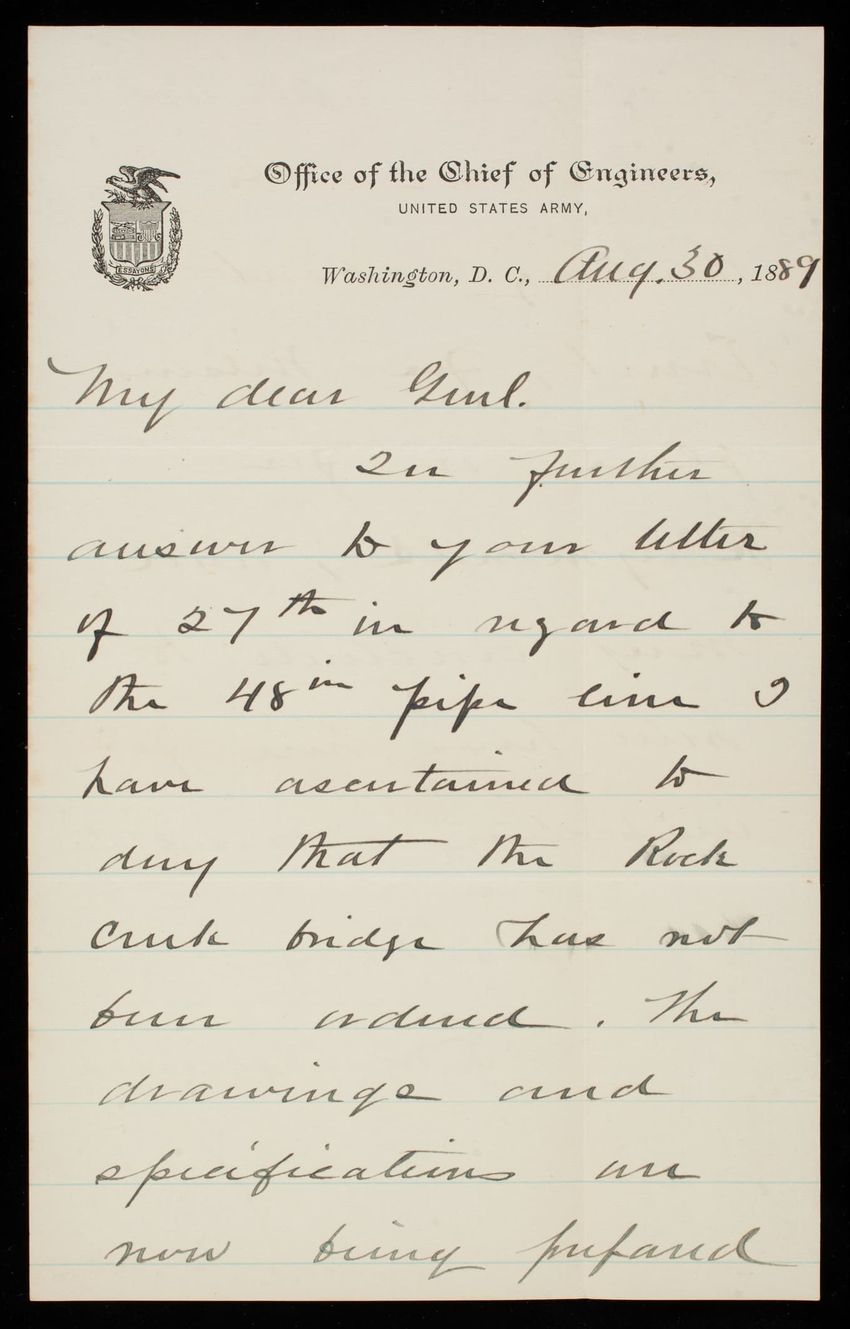 Office of the Chief of Engineers,
UNITED STATES ARMY,
ESSAYONS
Washington, D. C., Aug. 30, 1889
My dear Genl.
In further
answer to your letter
of 27th in regard to
the 48in pipe line I
have ascertained to
day that the Rock
Creek bridge has not
been ordered. The
drawings and
specifications are
now being prepared